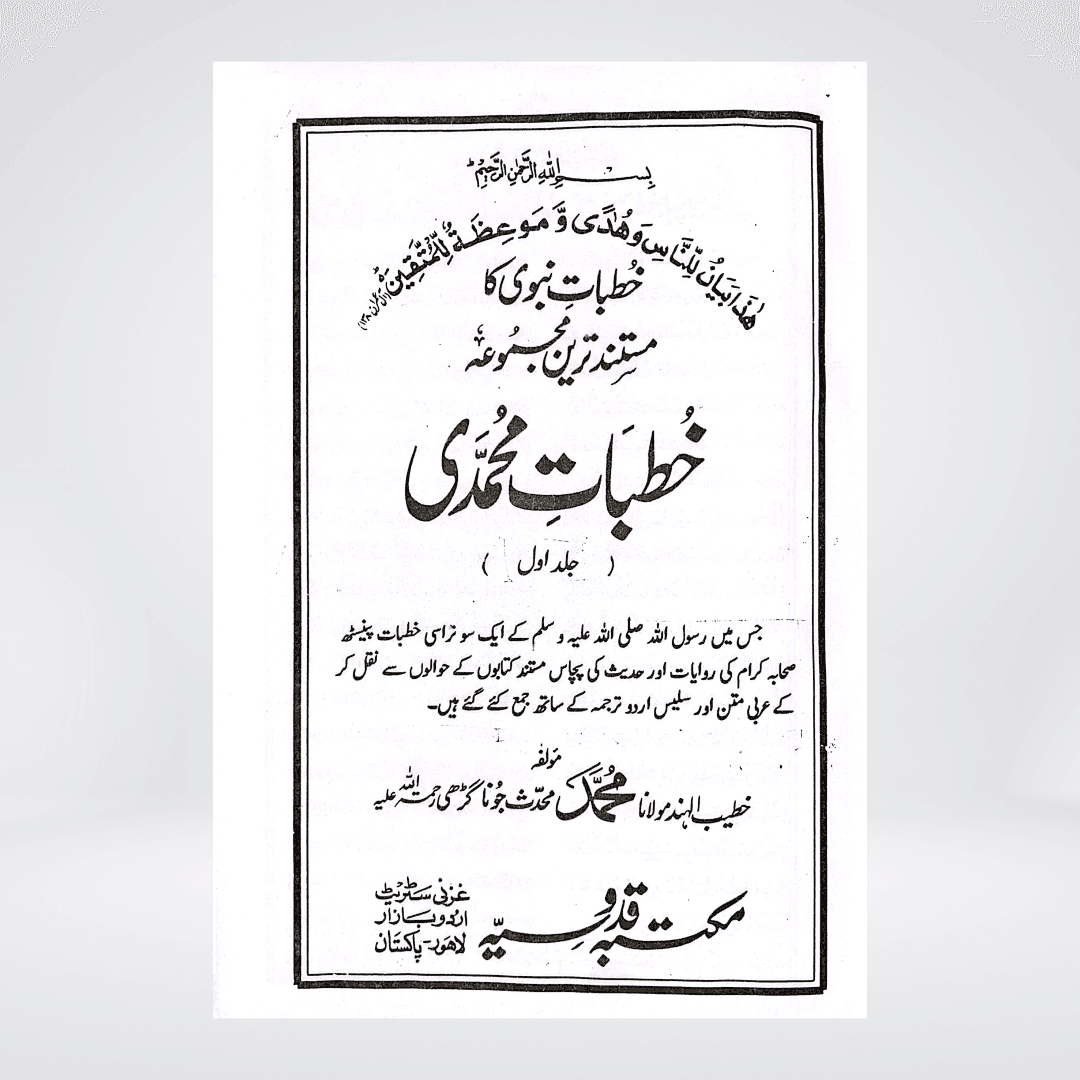 بِسْمِ اللهِ الرَّحْمٰنِ الرَّحِيْمِ
هٰذَا بَيَانٌ لِّلنَّاسِ وَهُدًى وَّ مَوْعِظَةٌ لِّلْمُتَّقِيْنَ (آل عمران ۱۳۸)
خُطباتِ نبوی کا
مستند ترین مجموعہ
خُطبَاتِ مُحَمَّدی
( جلد اول )
جس میں رسول اللہ صلی اللہ علیہ و سلم کے ایک سو تراسی خطبات پینسٹھ
صحابہ کرام کی روایات اور حدیث کی پچاس مستند کتابوں کے حوالوں سے نقل کر
کے عربی متن اور سلیس اردو ترجمہ کے ساتھ جمع کئے گئے ہیں۔
مولفہ
خطیب الہند مولانا مُحَمَّد محدّث جُونا گڑھی رحمۃ اللہ علیہ
مکتبہ قدوسیّہ
غزنی سٹریٹ
اردو بازار
لاھور - پاکستان